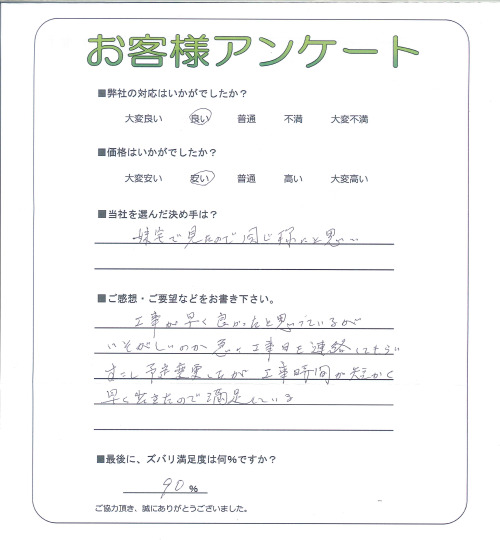 お客様アンケート
■弊社の対応はいかがでしたか？
大変良い 良い 普通 不満 大変不満
■価格はいかがでしたか？
大変安い 安い 普通 高い 大変高い
■当社を選んだ決め手は？
妹宅で見たので同じ様にと思い
■ご感想・ご要望などをお書き下さい。
工事が早く良かったと思っているが
いそがしいのか急に工事日を連絡して
予定変更したが 工事時間が短かく
早く出きたので満足している
■最後に、ズバリ満足度は何％ですか？
90 %
ご協力頂き、誠にありがとうございました。